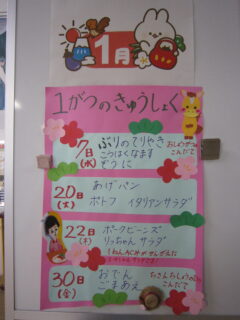 1月
1がつのきゅうしょく
7日(水)
ぶりのてりやき
こうはくなます
ぞうに
おしょうがつこんだて
20日(火)
あげパン
ポトフ イタリアンサラダ
22日(木)
ポークビーンズ
りっちゃんサラダ
30日(金)
おでん
ごまあえ
こんだて